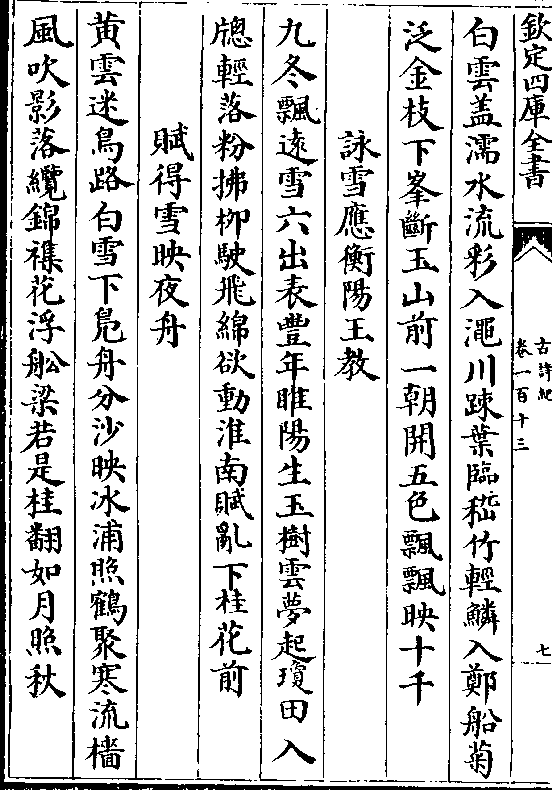 欽定四庫全書
古詩紀
卷一百十三
七
白雲盖濡水流彩入澠川踈葉臨嵇竹輕鱗入鄭船菊
泛金枝下峯斷玉山前一朝開五色飄飄映十千
詠雪應衡陽王教
九冬飄逺雪六出表豐年睢陽生玉樹雲夢起瓊田入
牕輕落粉拂柳駛飛綿欲動淮南賦亂下桂花前
賦得雪映夜舟
黄雲迷鳥路白雪下凫舟分沙映冰浦照鶴聚寒流檣
風吹影落纜錦襍花浮舩梁若是桂翻如月照秋